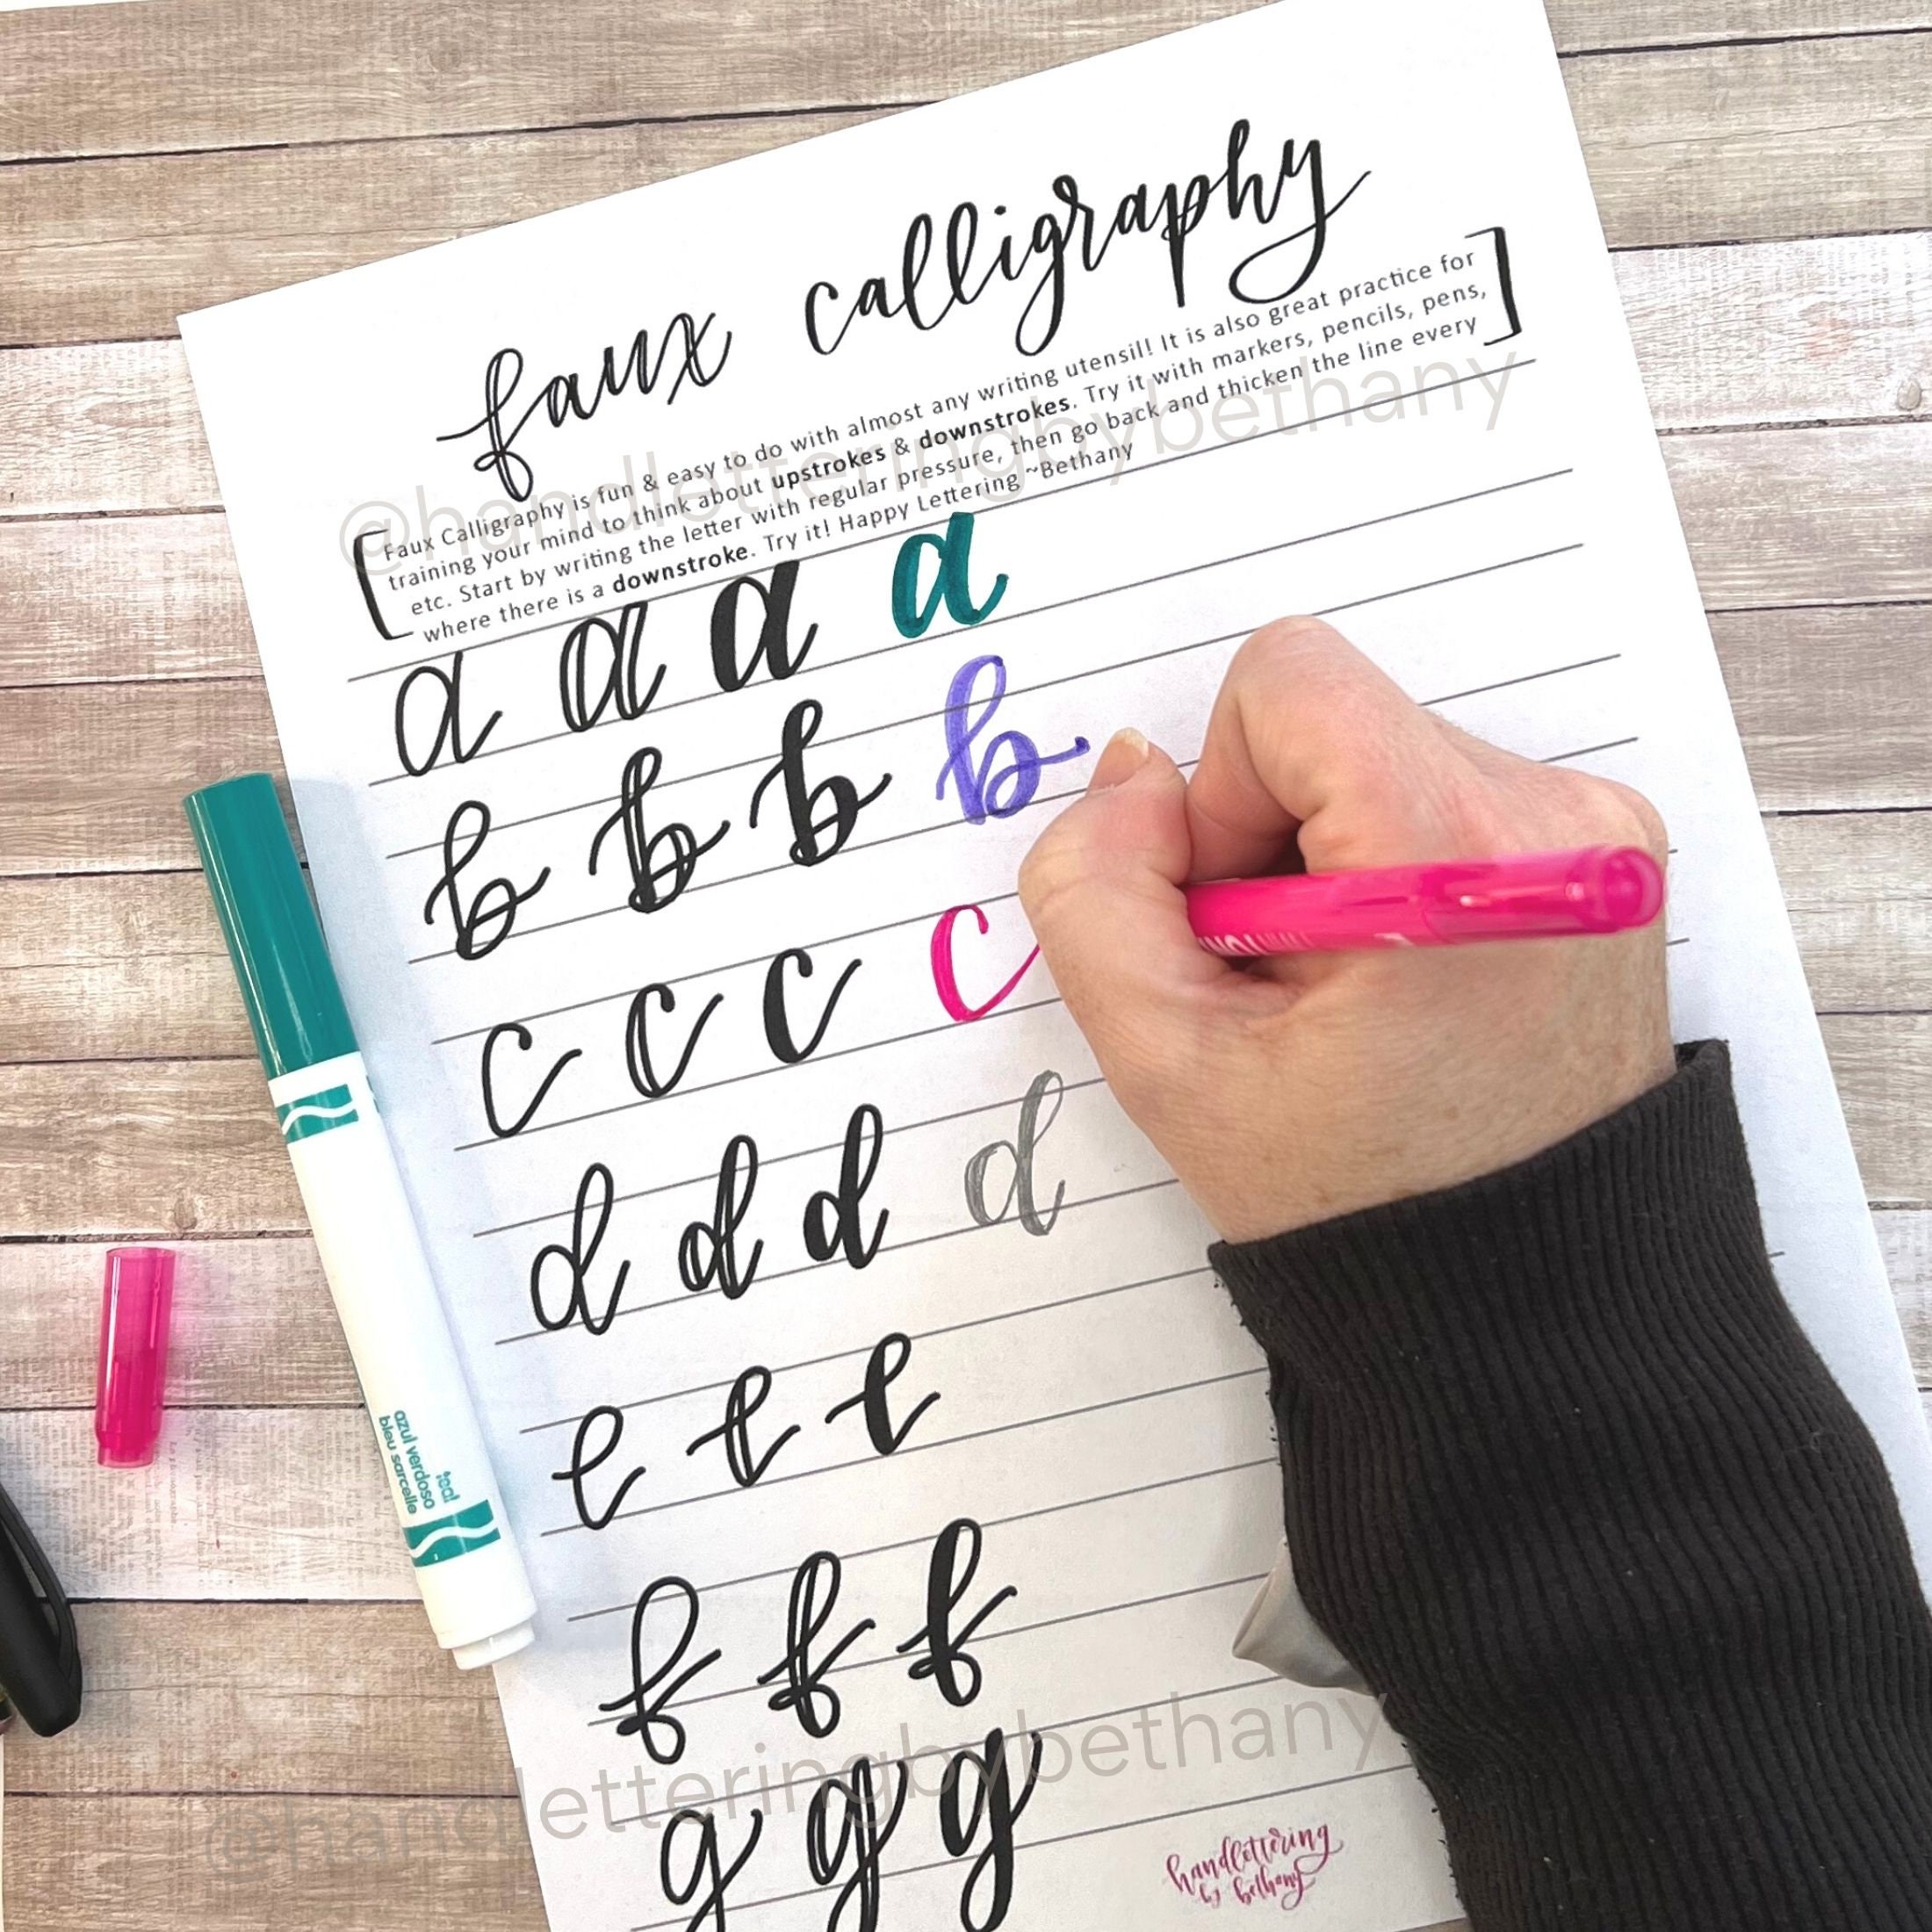 faux calligraphy
Faux Calligraphy is fun & easy to do with almost any writing utensil! It is also great practice for
training your mind to think about upstrokes & downstrokes. Try it with markers, pencils, pens,
etc. Start by writing the letter with regular pressure, then go back and thicken the line every
where there is a downstroke. Try it! Happy Lettering ~Bethany
@handletteringbybethany
a a a a
b b b b
c c c c
d d d d
e e e
f f f
g g g
teal
azul verdoso
bleu sarcelle
@handletteringbybethany
handlettering
by bethany